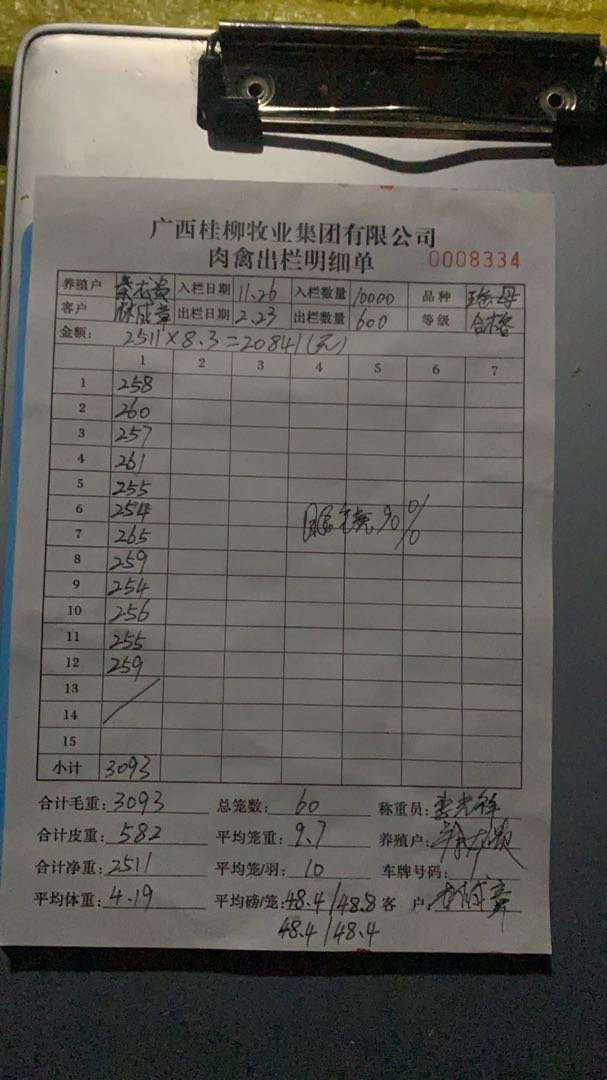 广西桂柳牧业集团有限公司
肉禽出栏明细单 0008334
养殖户 秦龙贵 入栏日期 11.26 入栏数量 10000 品种 母
客户 林成章 出栏日期 2.23 出栏数量 600 等级 合格
金额: 2511×8.3=20841(元)
1 2 3 4 5 6 7
1 258
2 260
3 257
4 261
5 255
6 254
7 265
8 259
9 254
10 256
11 255
12 259
90%
13
14
15
小计 3093
合计毛重: 3093 总笼数: 60 称重员:
合计皮重: 582 平均笼重: 9.7 养殖户:
合计净重: 2511 平均笼/羽: 10 车牌号码:
平均体重: 4.19 平均磅/笼: 48.4/48.8 客 户: 林成章
48.4/48.4